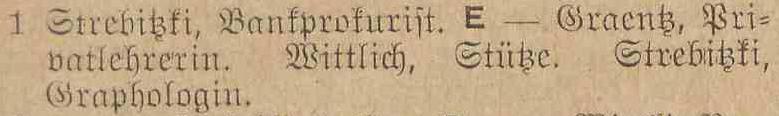 1 Strebitzki, Bankprokurist. E — Graentz, Pri-
vatlehrerin. Wittlich, Stütze. Strebitzki,
Graphologin.